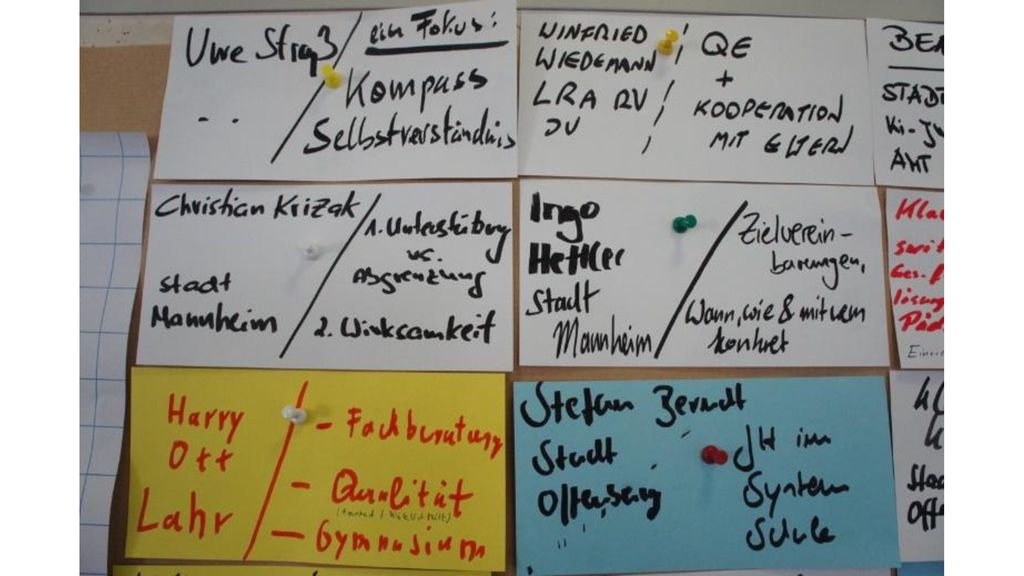 Uwe Straß / ein Fokus:
Kompass
Selbstverständnis
WINFRIED
WIEDEMANN
LRA RV
JU
QE
+
KOOPERATION
MIT ELTERN
STADT
Ki-Ju
AMT
Christian Krizak
Stadt
Mannheim
1. Unterstützung
vs.
Abgrenzung
2. Wirksamkeit
Ingo
Hettler
Stadt
Mannheim
Zielverein-
barungen,
Wann, wie & mit wem
konkret
Ges. f
lösung
Päd
Harry
Ott
Lahr
- Fachberatung
- Qualität
- Gymnasium
Stefan Berndt
Stadt
Offenburg
JH im
System
Schule
Stad
Offe